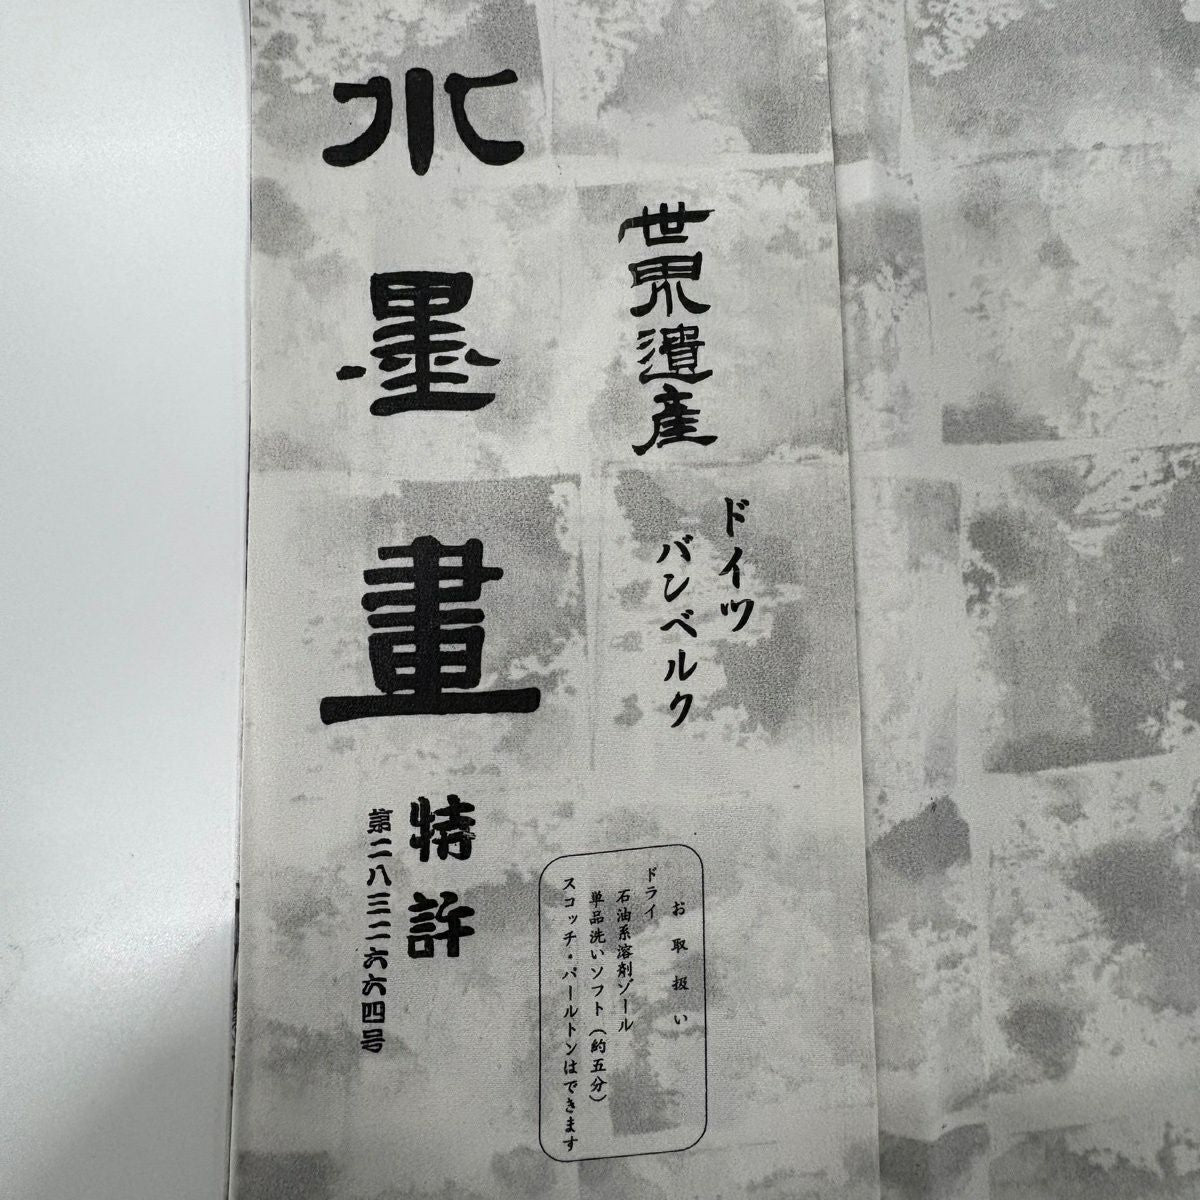 世界遺産
ドイツ
バンベルク
お取扱い
ドライ
石油系溶剤ゾール
単品洗いソフト（約五分）
スコッチ・パールトンはできます
水墨畫
特許
第二八三二六六四号